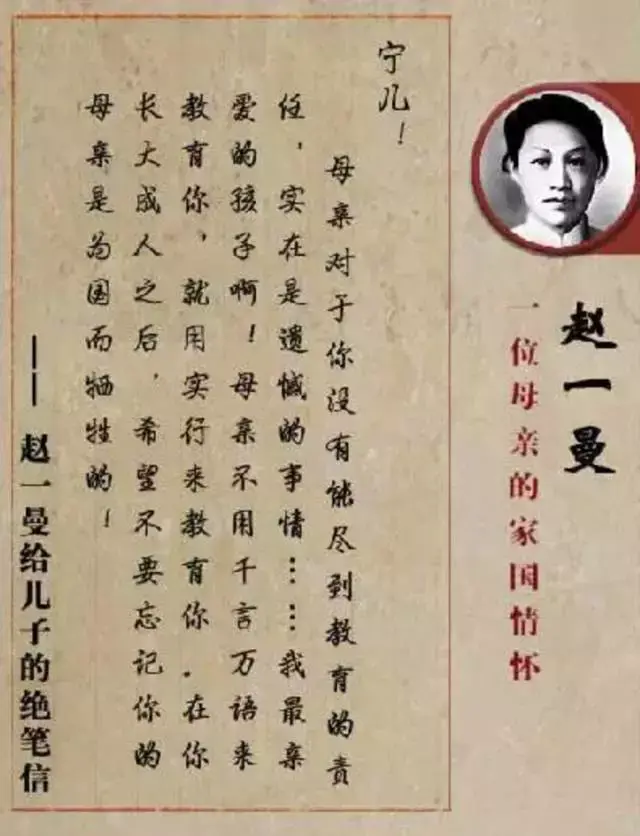 赵一曼
一位母亲的家国情怀
宁儿！
母亲对于你没有能尽到教育的责
任，实在是遗憾的事情……我最亲
爱的孩子啊！母亲不用千言万语来
教育你，就用实行来教育你．在你
长大成人之后，希望不要忘记你的
母亲是为国而牺牲的！
——赵一曼给儿子的绝笔信